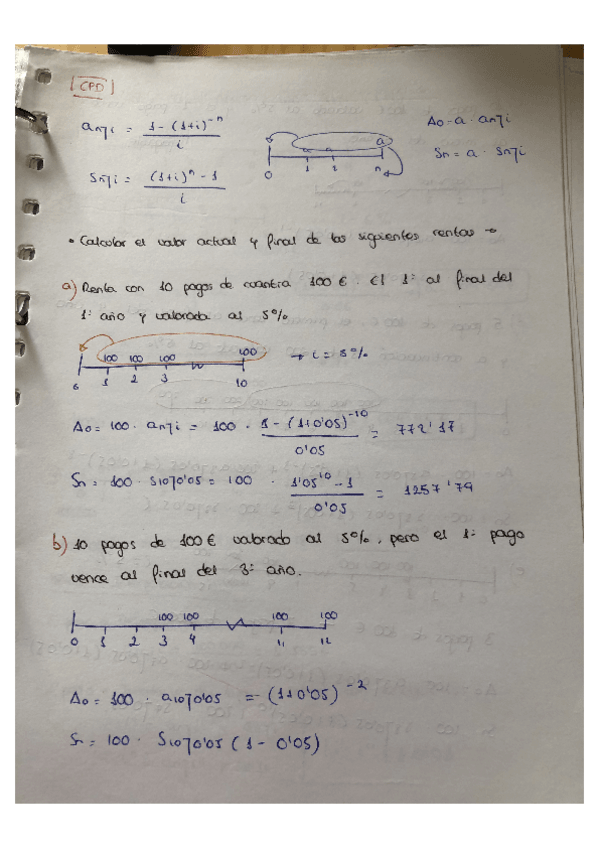 CPD
an┐i = 1 - (1+i)^-n / i
A0 = a · an┐i
Sn┐i = (1+i)^n - 1 / i
Sn = a · Sn┐i
a a a
0 1 2 n
• Calcular el valor actual y final de las siguientes rentas →
a) Renta con 10 pagos de cuantía 100 €. El 1º al final del
1º año y valorada al 5%
100 100 100 100 → i = 5%
0 1 2 3 10
A0 = 100 · an┐i = 100 · 1 - (1+0'05)^-10 / 0'05 = 772'17
Sn = 100 · S10┐0'05 = 100 · 1'05^10 - 1 / 0'05 = 1257'79
b) 10 pagos de 100 € valorado al 5%, pero el 1º pago
vence al final del 3º año.
100 100 100 100
0 1 2 3 4 11 12
A0 = 100 · a10┐0'05 = (1+0'05)^-2
Sn = 100 · S10┐0'05 (1 - 0'05)